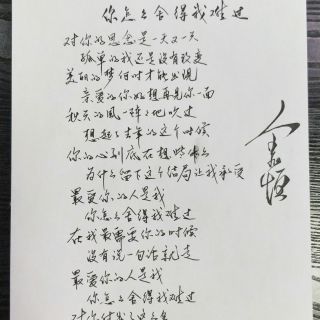 你怎么舍得我难过
对你的思念是一天又一天
孤单的我还是没有改变
美丽的梦何时才能出现
亲爱的你好想再见你一面
秋天的風一阵阵地吹过
想起了去年的这个时候
你的心到底在想些什么
为什么留下这个结局让我承受
最爱你的人是我
你怎么舍得我难过
在我最需要你的时候
沒有说一句话就走
最爱你的人是我
你怎么舍得我难过
对你付出了这么多